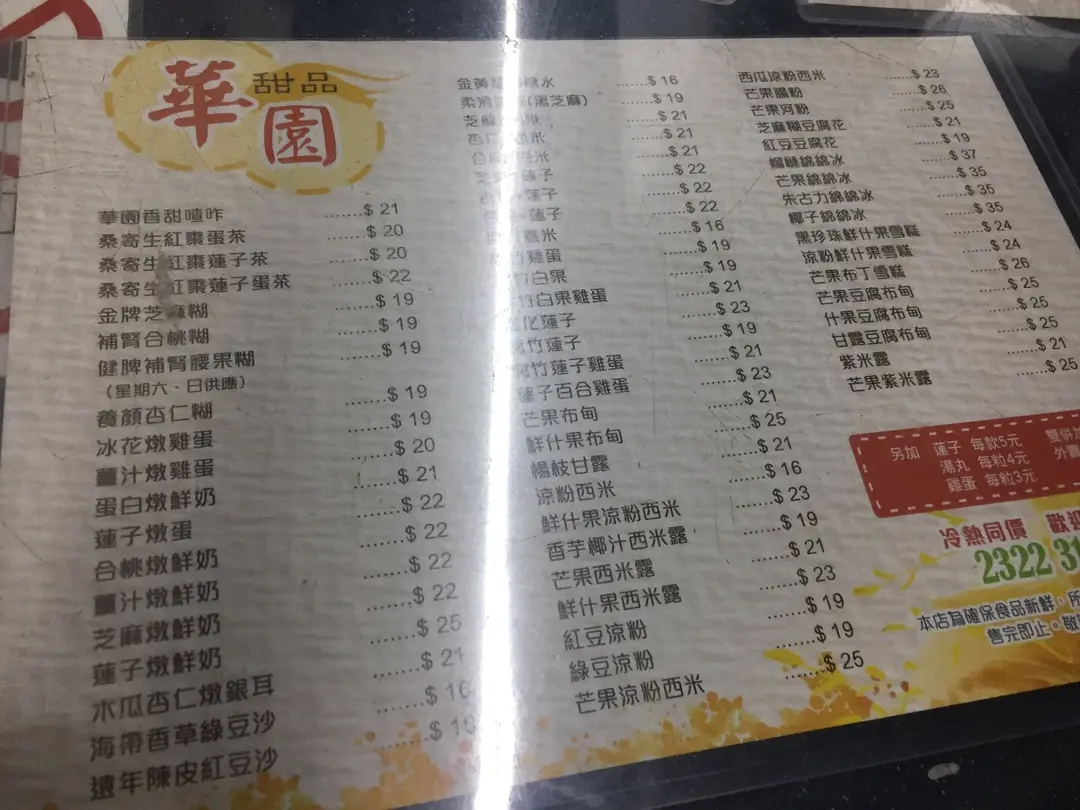 華園
甜品
華園香甜喳咋 ........$ 21
桑寄生紅棗蛋茶 ........$ 20
桑寄生紅棗蓮子茶 ........$ 20
桑寄生紅棗蓮子蛋茶 ........$ 22
金牌芝麻糊 ........$ 19
補腎合桃糊 ........$ 19
健脾補腎腰果糊 ........$ 19
(星期六、日供應)
養顏杏仁糊 ........$ 19
冰花燉雞蛋 ........$ 19
薑汁燉雞蛋 ........$ 20
蛋白燉鮮奶 ........$ 21
蓮子燉蛋 ........$ 22
合桃燉鮮奶 ........$ 22
薑汁燉鮮奶 ........$ 22
芝麻燉鮮奶 ........$ 22
蓮子燉鮮奶 ........$ 25
木瓜杏仁燉銀耳 ........$ 21
海帶香草綠豆沙 ........$ 16
遠年陳皮紅豆沙 ........$ 16
金黃 糖水 ........$ 16
柔滑 (黑芝麻) ........$ 19
芝麻 米 ........$ 21
杏仁 米 ........$ 21
合 西米 ........$ 21
芝 蓮子 ........$ 22
蓮子 ........$ 22
蓮子 ........$ 22
薏米 ........$ 16
竹雞蛋 ........$ 19
竹白果 ........$ 19
竹白果雞蛋 ........$ 21
化蓮子 ........$ 23
竹蓮子 ........$ 19
竹蓮子雞蛋 ........$ 21
蓮子百合雞蛋 ........$ 23
芒果布甸 ........$ 21
鮮什果布甸 ........$ 25
楊枝甘露 ........$ 21
涼粉西米 ........$ 16
鮮什果涼粉西米 ........$ 23
香芋椰汁西米露 ........$ 19
芒果西米露 ........$ 21
鮮什果西米露 ........$ 23
紅豆涼粉 ........$ 19
綠豆涼粉 ........$ 19
芒果涼粉西米 ........$ 25
西瓜涼粉西米 ........$ 23
芒果腸粉 ........$ 26
芒果河粉 ........$ 25
芝麻糊豆腐花 ........$ 21
紅豆豆腐花 ........$ 19
榴槤綿綿冰 ........$ 37
芒果綿綿冰 ........$ 35
朱古力綿綿冰 ........$ 35
椰子綿綿冰 ........$ 35
黑珍珠鮮什果雪糕 ........$ 24
涼粉鮮什果雪糕 ........$ 24
芒果布丁雪糕 ........$ 26
芒果豆腐布甸 ........$ 25
什果豆腐布甸 ........$ 25
甘露豆腐布甸 ........$ 25
紫米露 ........$ 21
芒果紫米露 ........$ 25
另加 蓮子 每款5元 雙併加
湯丸 每粒4元 外賣
雞蛋 每粒3元
冷熱同價 歡迎
2322 31
本店為確保食品新鮮，所
售完即止。敬